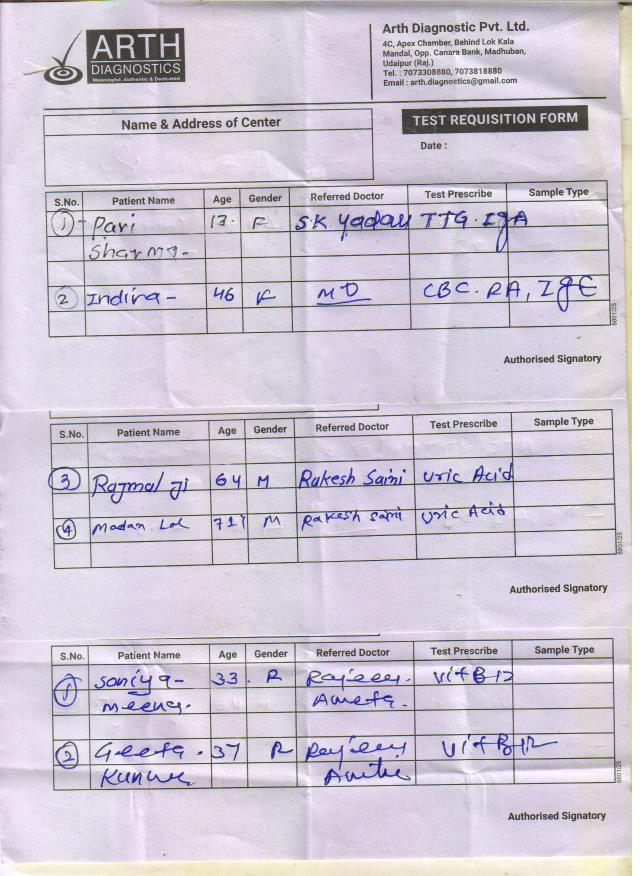 ARTH
DIAGNOSTICS
Meaningful, Authentic & Dedicated
Arth Diagnostic Pvt. Ltd.
4C, Apex Chamber, Behind Lok Kala
Mandal, Opp. Canara Bank, Madhuban,
Udaipur (Raj.)
Tel. : 7073308880, 7073818880
Email : arth.diagnostics@gmail.com
Name & Address of Center
TEST REQUISITION FORM
Date :
S.No. Patient Name Age Gender Referred Doctor Test Prescribe Sample Type
1 - Pari 13. F S.K Yadav TTG. IgA
Sharma-
2 Indira - 46 F MD CBC. RA, IgE
8801/25
Authorised Signatory
S.No. Patient Name Age Gender Referred Doctor Test Prescribe Sample Type
3 Rajmal Ji 64 M Rakesh Saini Uric Acid
4 Madan Lal 71 M Rakesh Saini Uric Acid
8801/25
Authorised Signatory
S.No. Patient Name Age Gender Referred Doctor Test Prescribe Sample Type
1 Soniya - 33. Rajeev. Vit B-12
Meena. Ameta.
2 Geeta. 37 Rajeev Vit B12
Kunwar
8801/25
Authorised Signatory